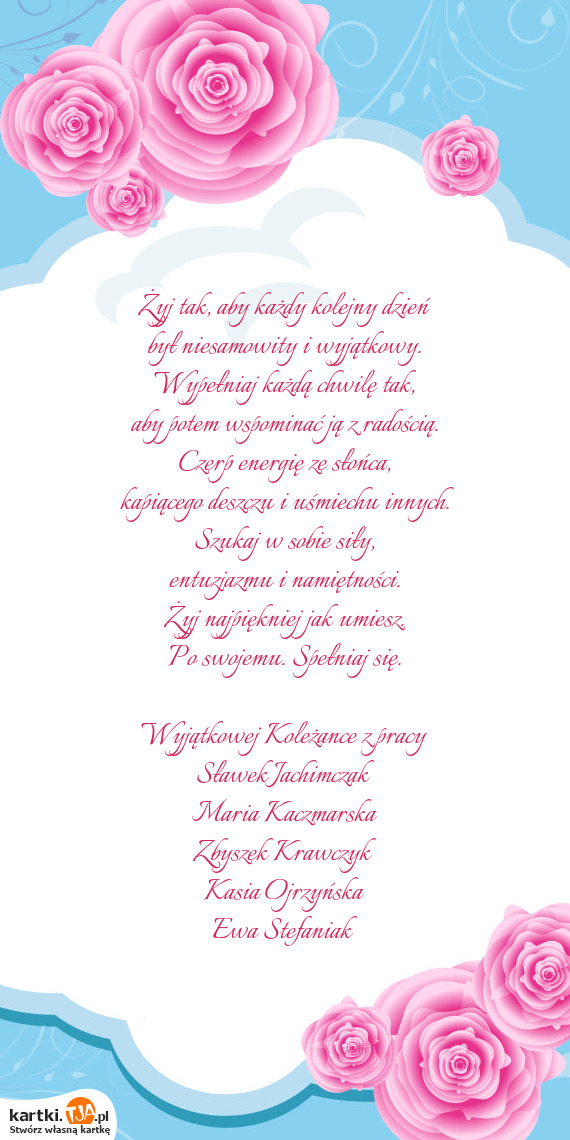 Żyj tak, aby każdy kolejny dzień
był niesamowity i wyjątkowy.
Wypełniaj każdą chwilę tak,
aby potem wspominać ją z radością.
Czerp energię ze słońca,
kapiącego deszczu i uśmiechu innych.
Szukaj w sobie siły,
entuzjazmu i namiętności.
Żyj najpiękniej jak umiesz.
Po swojemu. Spełniaj się.
Wyjątkowej Koleżance z pracy
Sławek Jachimczak
Maria Kaczmarska
Zbyszek Krawczyk
Kasia Ojrzyńska
Ewa Stefaniak
kartki.TJA.pl
Stwórz własną kartkę